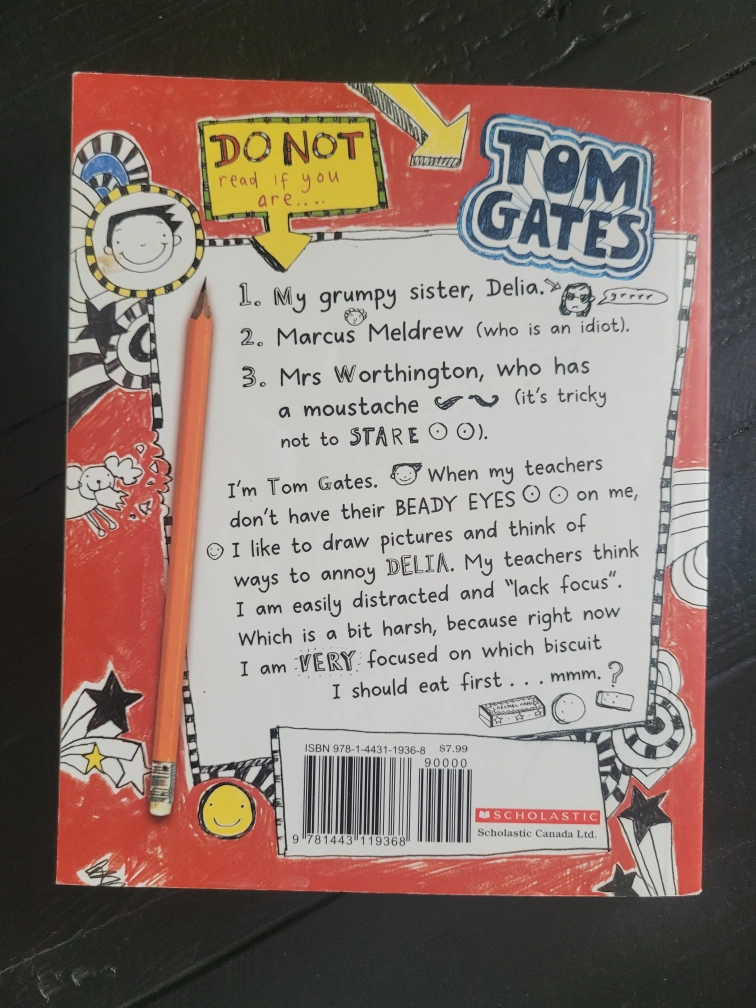 DO NOT
read if you
are....
TOM
GATES
1. My grumpy sister, Delia.
grrrr
2. Marcus Meldrew (who is an idiot).
3. Mrs Worthington, who has
a moustache (it's tricky
not to STARE).
I'm Tom Gates. When my teachers
don't have their BEADY EYES on me,
I like to draw pictures and think of
ways to annoy DELIA. My teachers think
I am easily distracted and "lack focus".
Which is a bit harsh, because right now
I am VERY focused on which biscuit
I should eat first . . . mmm. ?
ISBN 978-1-4431-1936-8 $7.99
90000
9 781443 119368
SCHOLASTIC
Scholastic Canada Ltd.